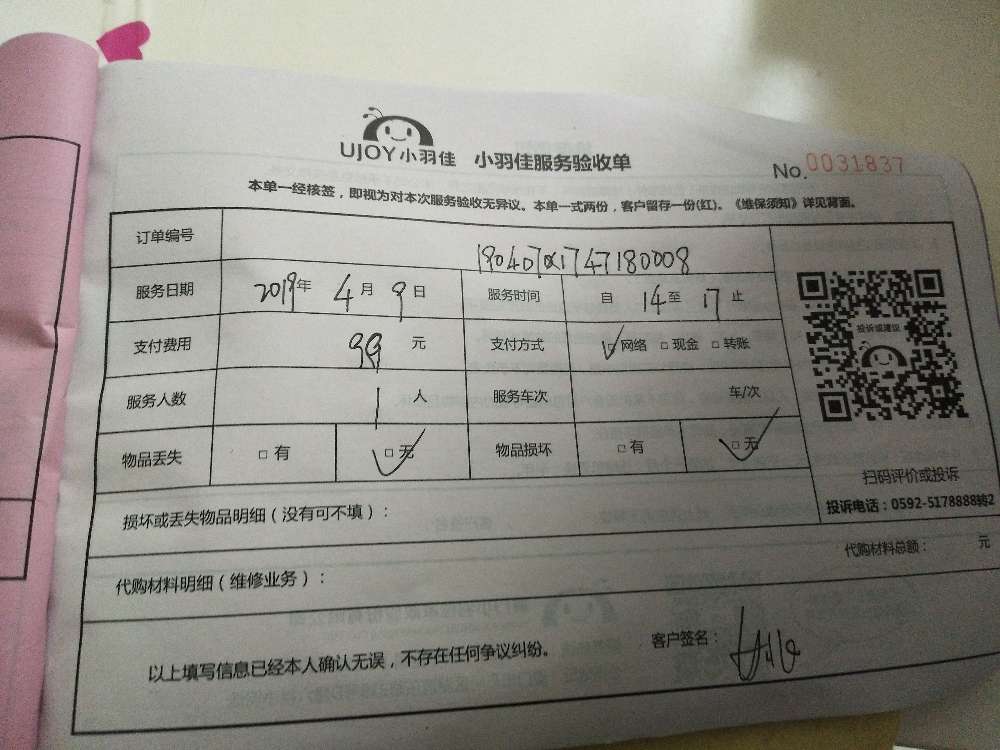 UJOY小羽佳 小羽佳服务验收单 No.0031837
本单一经核签，即视为对本次服务验收无异议。本单一式两份，客户留存一份(红)。《维保须知》详见背面。
订单编号
服务日期 2019年 4月 9日 服务时间 自 14至 17止
支付费用 99 元 支付方式 □网络 □现金 □转账
服务人数 1人 服务车次 车/次
物品丢失 □有 □无 物品损坏 □有 □无
投诉或建议
扫码评价或投诉
投诉电话：0592-5178888转2
损坏或丢失物品明细（没有可不填）：
代购材料明细（维修业务）： 代购材料总额： 元
以上填写信息已经本人确认无误，不存在任何争议纠纷。 客户签名：